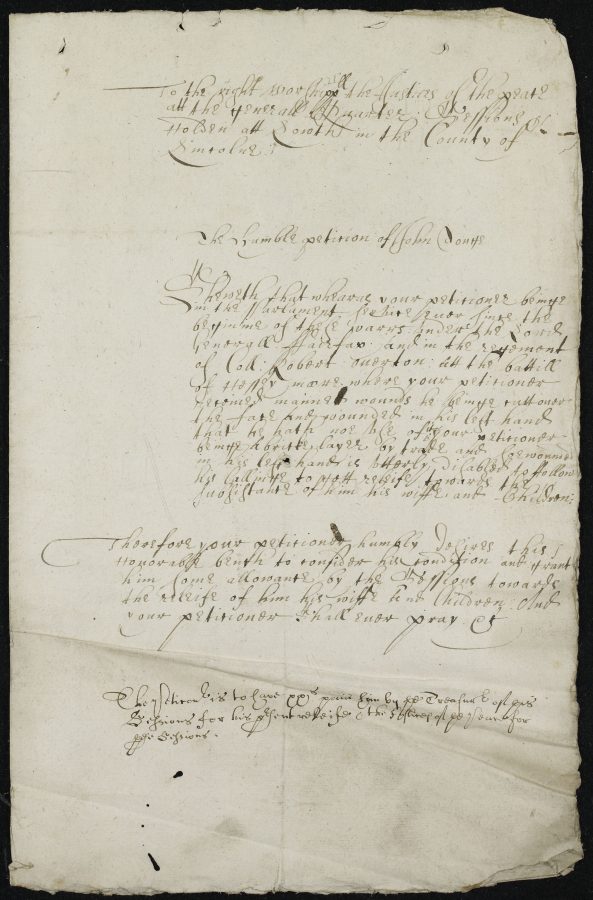 To the right worshipll the Justices of the peace
att the generall Quarter Sessions
Holden att Lowth in the County of
Lincolne:
The Humble petition of John
Sheweth that whearas your petitioner beinge
in the Parlament service ever since the
beginnine of these warrs under the Lord
Generall ffairfax: and in the regement
of Coll: Robert overton: att the battill
of Hessey moore where your petitioner
receved mainnet wounds he beinge cutt over
the face and wounded in his left hand
that he hath noe use of your petitioner
beinge A bricke layer by trade and wound
in his left hand: is utterly disabled to follow
his callinge to gett releife towards the
subsistance of him his wiffe and Children:
Therefore your petitioner humbly desires this
Honorable bench to consider his condition and grant
him some allowance by the towards
the releife of him his wiffe and Children And
your petitioner shall ever pray &c
The is to have xxs him by ye Treasurer of this
Sessions for his releife &
Sessions.